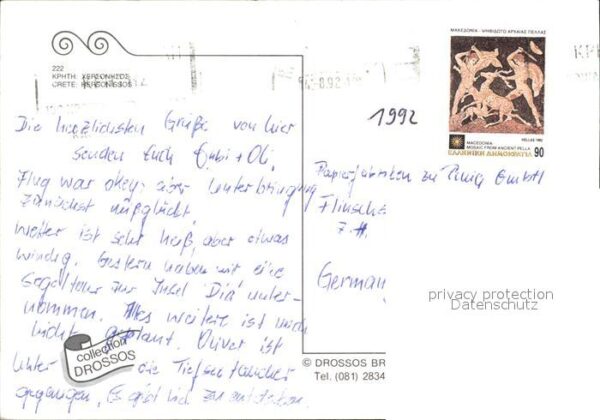 222
ΚΡΗΤΗ: ΧΕΡΣΟΝΗΣΟΣ
CRETE: HERSONISSOS
Die herzlichsten Grüße von hier
senden Euch Gabi + Oli.
Flug war okey, aber Unterbringung
zunächst mißglückt.
Wetter ist sehr heiß, aber etwas
windig. Gestern haben wir eine
Segeltour zur Insel "Dia" unter-
nommen. Alles weitere ist noch
nicht geplant. Oliver ist
unter die Tiefseetaucher
gegangen. Es gibt viel zu entdecken.
collection
DROSSOS
ΜΑΚΕΔΟΝΙΑ - ΨΗΦΙΔΩΤΟ ΑΡΧΑΙΑΣ ΠΕΛΛΑΣ
HELLAS 1992
MACEDONIA
MOSAIC FROM ANCIENT PELLA
ΕΛΛΗΝΙΚΗ ΔΗΜΟΚΡΑΤΙΑ 90
1992
Papierfabriken zu GmbH
z. H.
German
privacy protection
Datenschutz
© DROSSOS BR
Tel. (081) 2834